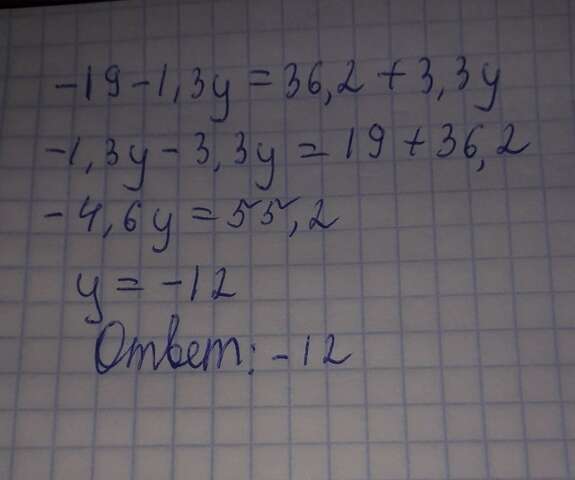 -19-1,3y=36,2+3,3y
-1,3y-3,3y=19+36,2
-4,6y=55,2
y=-12
Ответ: -12